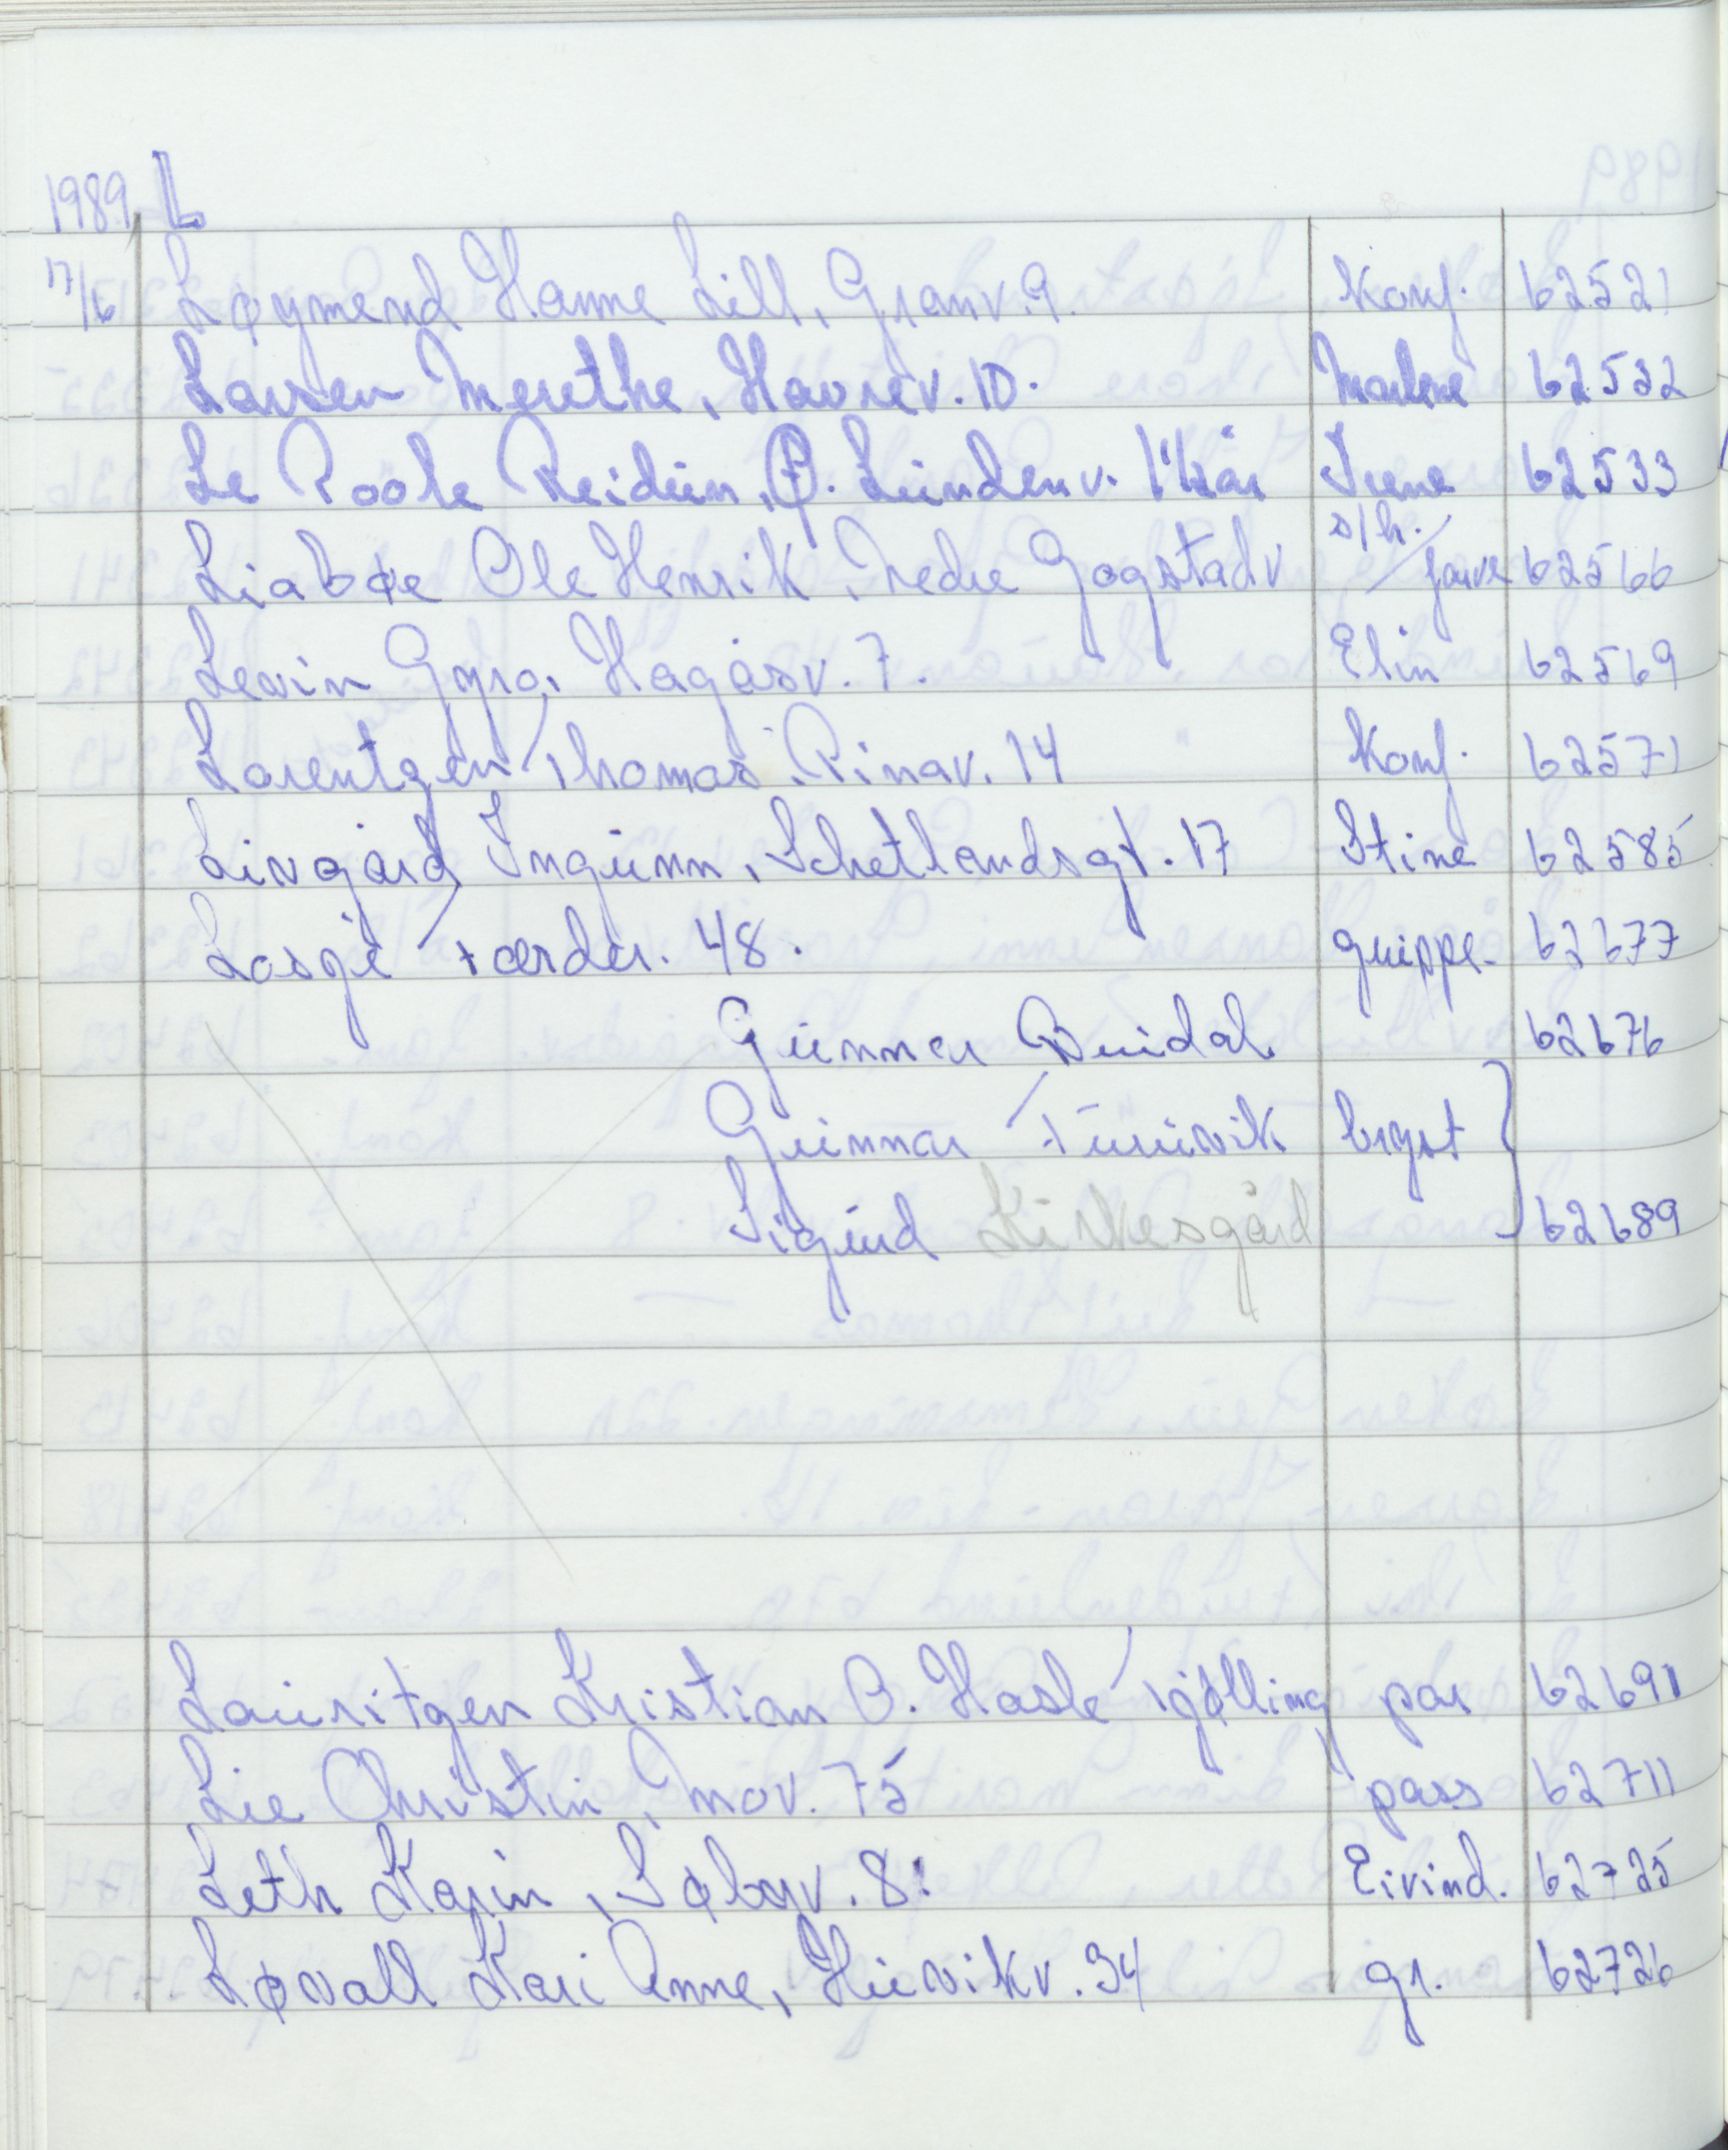 1989 L
17/6 Løymend Hanne Lill, Granv. 9. Konf. 62521
Larsen Merethe, Havrev. 10. Marlene 62532
Le Poole Reidun, P. Lundenv. Irene 62533
Liabøe Ole Henrik, Nedre Gogstadv s/h. / farve 62566
Levin Gyro, Hagåsv. 7. Elin 62569
Lorentzen Thomas, Pinav. 14 Konf. 62571
Livgård Ingunn, Schetlandsgt. 17 Stine 62585
Losje Færder. 48. gruppe. 62677
Gunnar Bruidal 62676
Gunnar Turuvik bryst
Sigurd Kirkesgård } 62689
Lauritzen Kristian B. Hasle, Tjølling par 62691
Lie Christin, Mov. 75 pass 62711
Leth Karin, Søbyv. 8. Eivind. 62725
Løvall Kari Anne, Huvikv. 34 gr. 62726